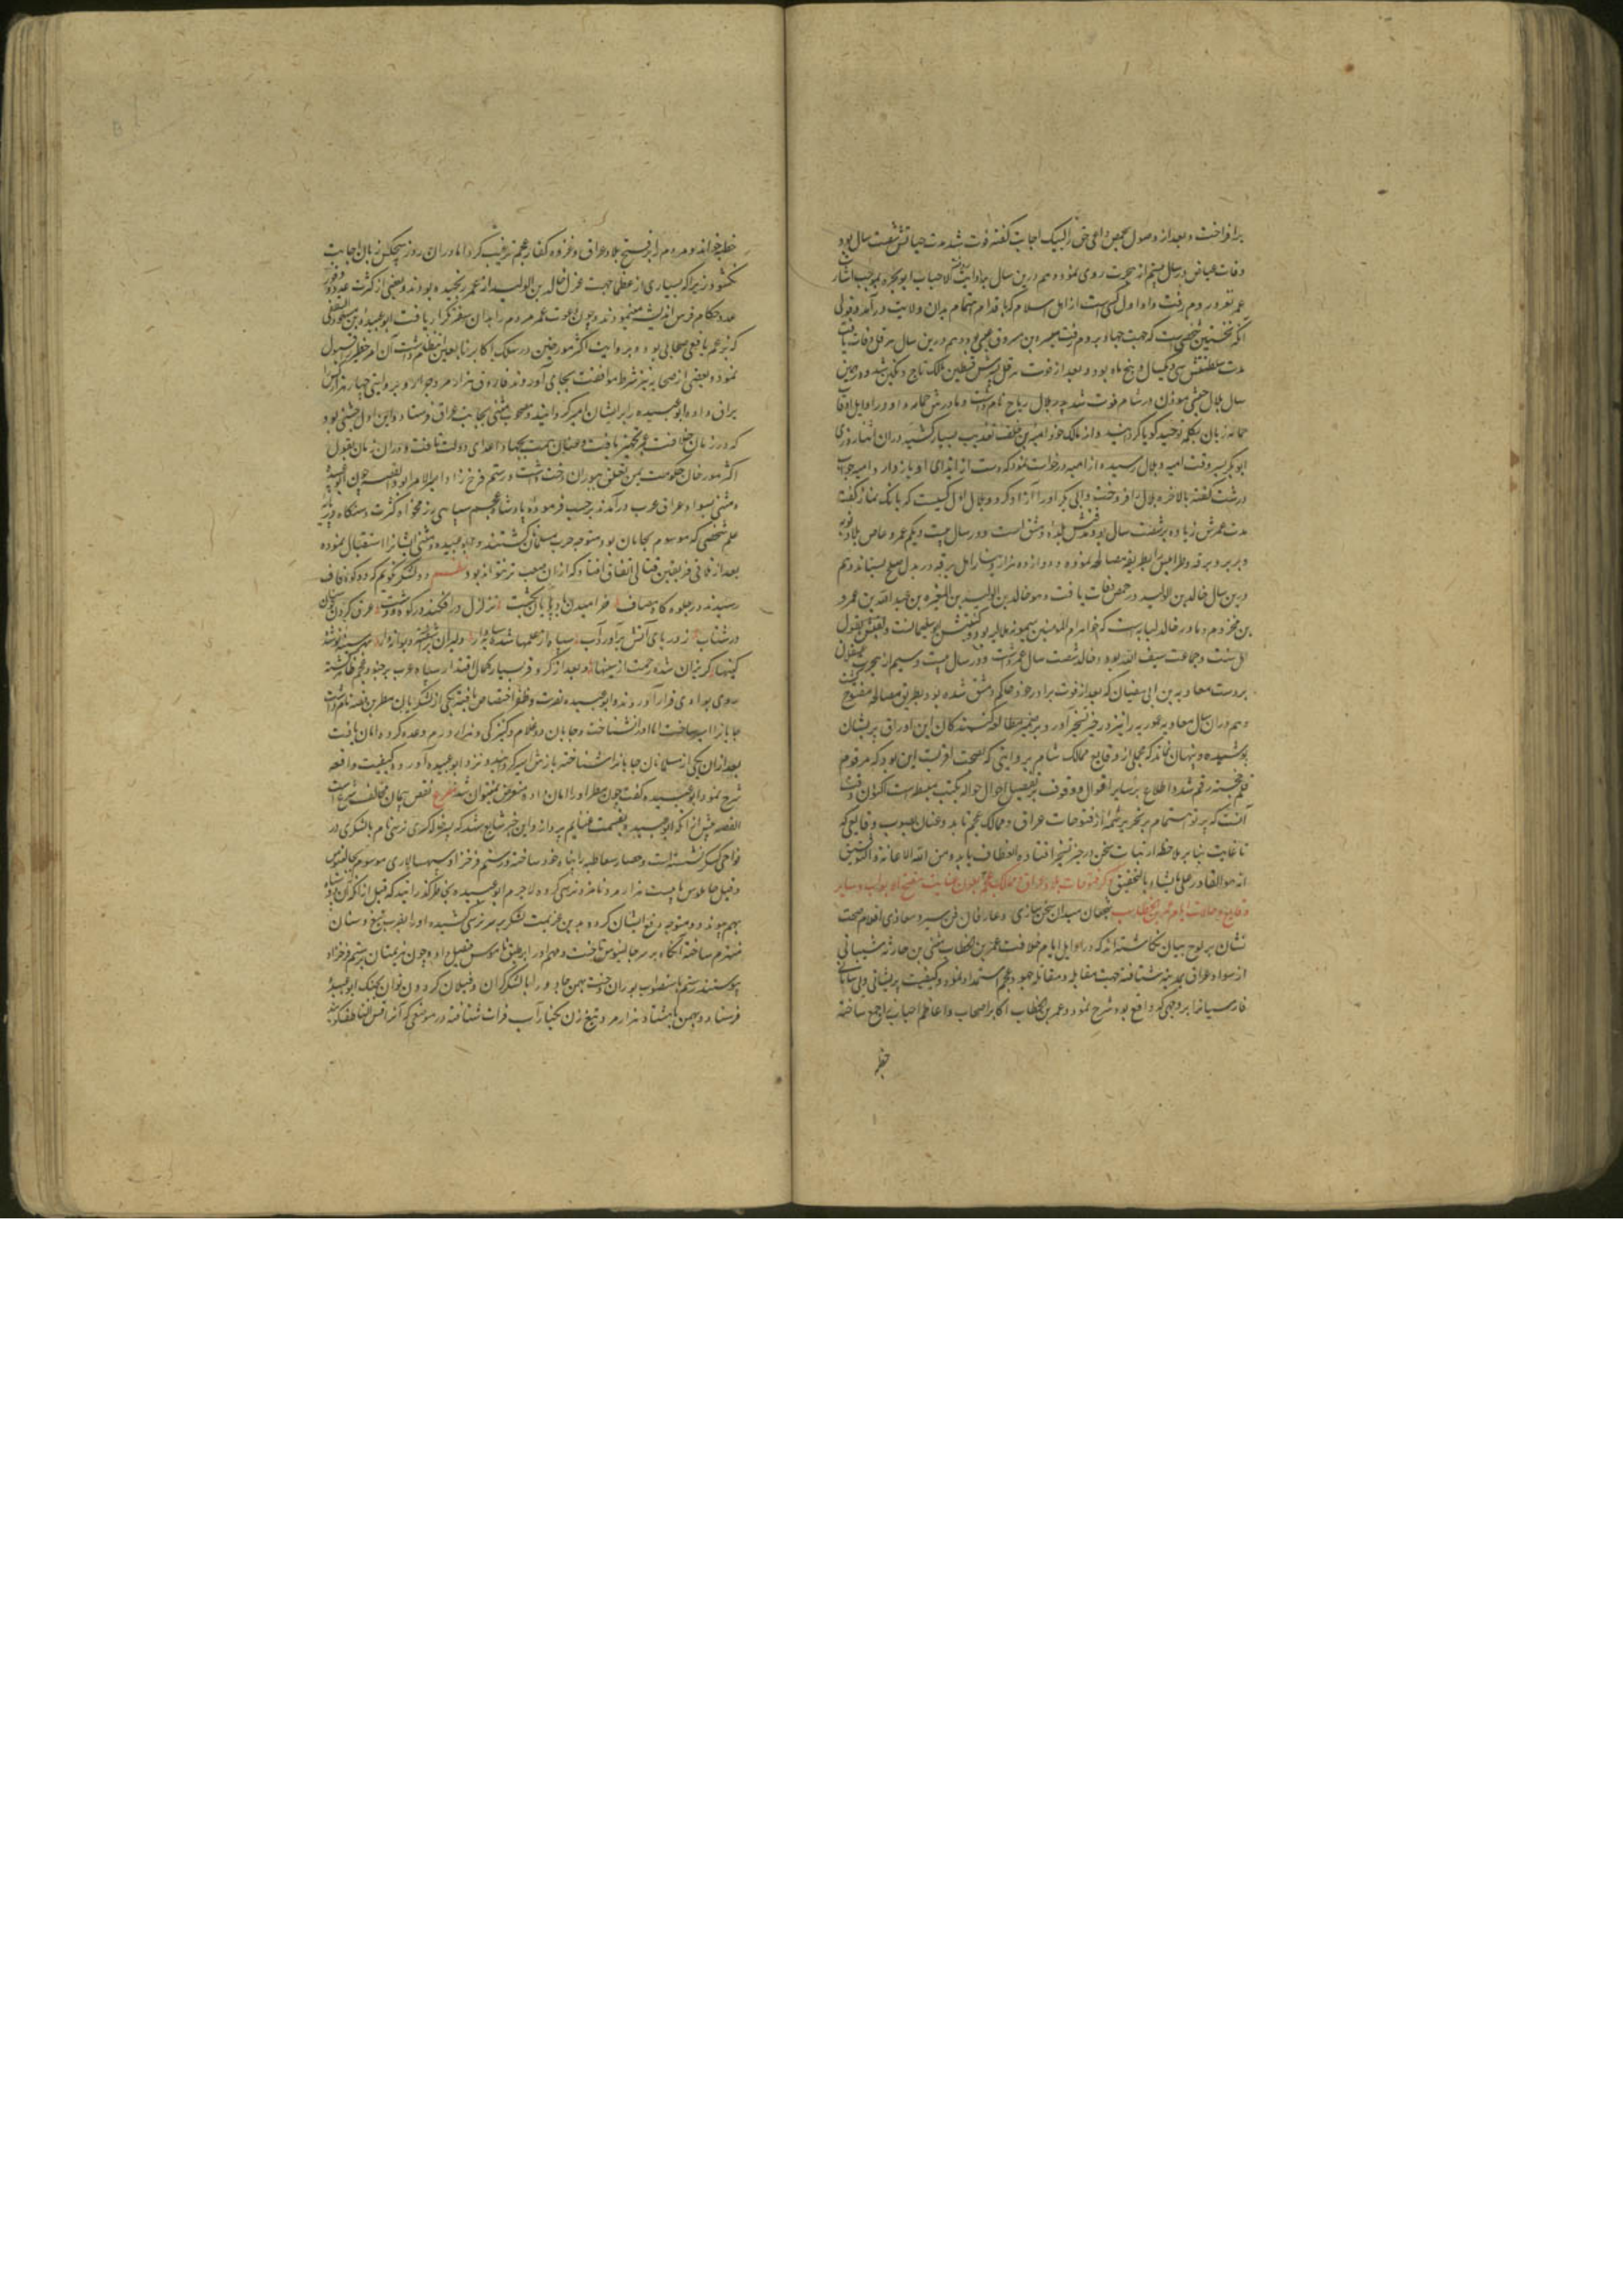 برافراخت و بعد از وصول بحمص داعی حق را لبیک اجابت گفته فوت شد مدت حیاتش شصت سال بود
وفات عیاض در سال بیستم از هجرت روی نمود و هم درین سال
عمر بغزو روم رفت و او اول کسی است از اهل اسلام که باقدام اهتمام بدان ولایت درآمد و قولی
آنکه نخستین شخصی است که جهت جهاد بروم رفت میسره بن مسروق عبسی بود و هم درین سال هرقل وفات یافت
مدت سلطنتش سی و یکسال و پنج ماه بود و بعد از فوت هرقل پسرش قسطنطین مالک تاج و نگین شد و در همین
سال بلال حبشی مؤذن در شام فوت شد پدر بلال رباح نام داشت و مادرش حمامه و او در اوایل اوقات
زبان بکلمه توحید گویا گردانید و از مالک خود امیه بن خلف تعذیب بسیار کشید در آن اثنا روزی
ابوبکر بسر وقت امیه و بلال رسیده از امیه درخواست نمود که دست از ایذای او باز دارد و امیه جواب
درشت گفته بالاخره بلال را فروخت و ابی بکر او را آزاد کرد و بلال اول کسیست که بانگ نماز گفت
مدت عمرش زیاده بر شصت سال بود و مدفنش بلده دمشق است و در سال بیست و یکم عمرو عاص بلاد نوبه
و بربر و برقه و طرابلس را بطریقه مصالحه نموده و دوازده هزار دینار از اهل برقه در بدل صلح بستاند و هم
درین سال خالد بن الولید در حمص وفات یافت و هو خالد بن الولید بن المغیره بن عبد الله بن عمرو
بن مخزوم و مادر خالد لبابه است که خواهر ام المؤمنین میمونه بود و کنیتش ابو سلیمان است و لقبش بقول
اهل سنت و جماعت سیف الله بود و خالد شصت سال عمر داشت و در سال بیست و سیم از هجرت عسقلان
بر دست معاویه بن ابی سفیان که بعد از فوت برادر خود حاکم دمشق شده بود بطریق مصالحه مفتوح گشت
و هم در آن سال معاویه عموریه را نیز در حیز تسخیر آورد و بر ضمیر مطالعه کنندگان این اوراق پریشان
پوشیده و پنهان نماند که مجملی از وقایع ممالک شام بروایتی که بصحت اقربست این بود که مرقوم
قلم خجسته رقم شد و اطلاع بر سایر اقوال و وقوف بر تفصیل احوال حواله بکتب مبسوط است اکنون وقت
آنست که پرتو اهتمام بر تحریر شمه از فتوحات عراق و ممالک عجم تابد و عنان بصوب وقایعی که
تا غایت بنابر ملاحظه ارتباط سخن در حیز تأخیر افتاده انعطاف یابد و من الله الاعانة و التوفیق
انه هو القادر علی ما یشاء بالتحقیق ذکر فتوحات بلاد عراق و ممالک عجم بعون عنایت مفتح الابواب و سایر
وقایع و حالات ایام عمر بن الخطاب شجعان میدان سخن سازی و عارفان فن سیر و مغازی اقلام صحت
نشان بر لوح بیان نگاشته اند که در اوایل ایام خلافت عمر بن الخطاب مثنی بن حارثه شیبانی
از سواد عراق بمدینه شتافته جهت مقابله و مقاتله جنود عجم استمداد نمود و کیفیت پریشانی و بی سامانی
فارسیانرا بر وجهی که واقع بود شرح نمود و عمر بن الخطاب اکابر اصحاب و اعاظم احباب را جمع ساخته
خطبه
خطبه خواند و مردم را بر فتح بلاد عراق و غزوه کفار عجم ترغیب کرد اما در آن روز هیچکس زبان اجابت
نگشود زیرا که بسیاری از عظما جهت عزل خالد بن الولید از عمر رنجیده بودند و بعضی از کثرت عدد و وفور
عدد حکام فرس اندیشه مینمودند و چون دعوت عمر مردم را بدان سفر تکرار یافت ابو عبیده بن مسعود الثقفی
که بزعم یافعی صحابی بود و بروایت اکثر مورخین در سلک اکابر تابعین انتظام داشت آن امر خطیر قبول
نمود و بعضی از صحابه نیز شرط موافقت بجای آوردند فاروق هزار مرد جرار و بروایتی چهار هزار کس
یراق داده ابو عبیده را بر ایشان امیر گردانید و مصحوب مثنی بجانب عراق فرستاد و این اول جیشی بود
که در زمان خلافت عمر تجهیز یافت و عنان همت بجهاد اعدای دولت تافت و در آن زمان بقول
اکثر مورخان حکومت یمن تعلق بپوران دخت داشت و رستم فرخ زاد امیر الامرا بود القصه چون ابو عبیده
و مثنی بسواد عراق عرب درآمدند بر حسب فرموده پادشاه عجم سپاهی رزمخواه
علم شخصی که موسوم بجابان بود متوجه حرب مسلمانان گشتند و ابو عبیده و مثنی ایشانرا استقبال نموده
بعد از تلاقی فریقین قتالی اتفاق افتاد که از آن صعب تر نتواند بود نظم دو لشکر نگویم که دو کوه قاف
رسیدند در جلوه گاه مصاف خرامیدن تزلزل در افکند در کوه و دشت
در شتاب ز دریای آتش برآورد آب
گریزان شده رحمت از سینها و بعد از کر و فر بسیار بکمال اقتدار سپاه عرب بر جنود عجم ظفر گشته
روی بوادی فرار آوردند و ابو عبیده بنصرت و ظفر اختصاص یافته یکی از لشکریان مطر بن فضه نام داشت
جابانرا اسیر ساخت اما او را نشناخت و جابان دو غلام و کنیزکی و هزار درم وعده کرد و امان یافت
بعد از آن یکی از مسلمانان جابانرا شناخته بازش اسیر گردانید و نزد ابو عبیده آورد و کیفیت واقعه
شرح نمود ابو عبیده گفت چون مطر او را امان داده متعرض نمیتوان شد مصرع نقض پیمان مخالف شرع است
القصه پیش از آنکه ابو عبیده بقسمت غنایم پردازد این خبر شایع شد که پسر خاله کسری نرسی نام با لشکری در
نواحی کسکر نشسته است و حصار سقاطیه را پناه خود ساخته و رستم فرخزاد سپهسالاری موسوم بجالینوس
و قیل جاملوس با بیست هزار مرد نامزد نرسی کرده لاجرم ابو عبیده بخاطر گذرانید که قبل از آنکه آن دو سپاه
بهم پیوندد متوجه دفع ایشان گردد بدین عزیمت لشکر بر سر نرسی کشیده او را بضرب تیغ و سنان
منهزم ساخته آنگاه بر سر جالینوس تاخت و مهم او را بر همین ناموس فیصل داد و چون منهزمان برستم فرخزاد
پیوستند رستم باستصواب پوران دخت بهمن جادو را با لشکر گران و فیلان گردون توان بجنگ ابو عبیده
فرستاد و بهمن با هشتاد هزار مرد تیغ زن بکنار آب فرات شتافته در موضعی که آنرا قس الناطف گویند